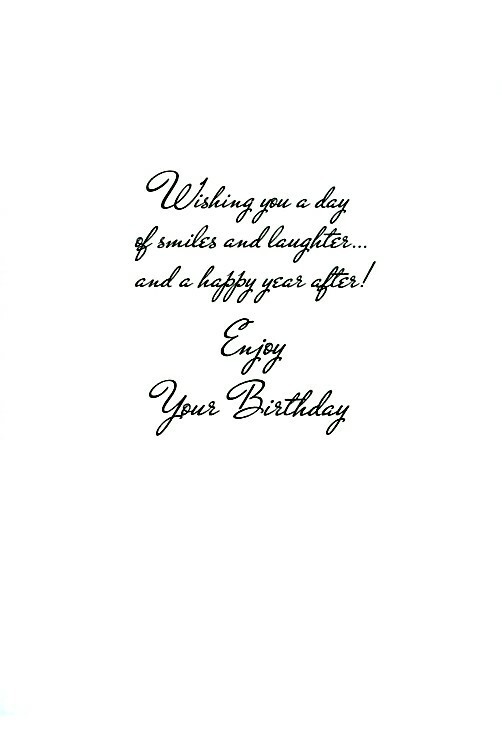 Wishing you a day
of smiles and laughter...
and a happy year after!
Enjoy
Your Birthday